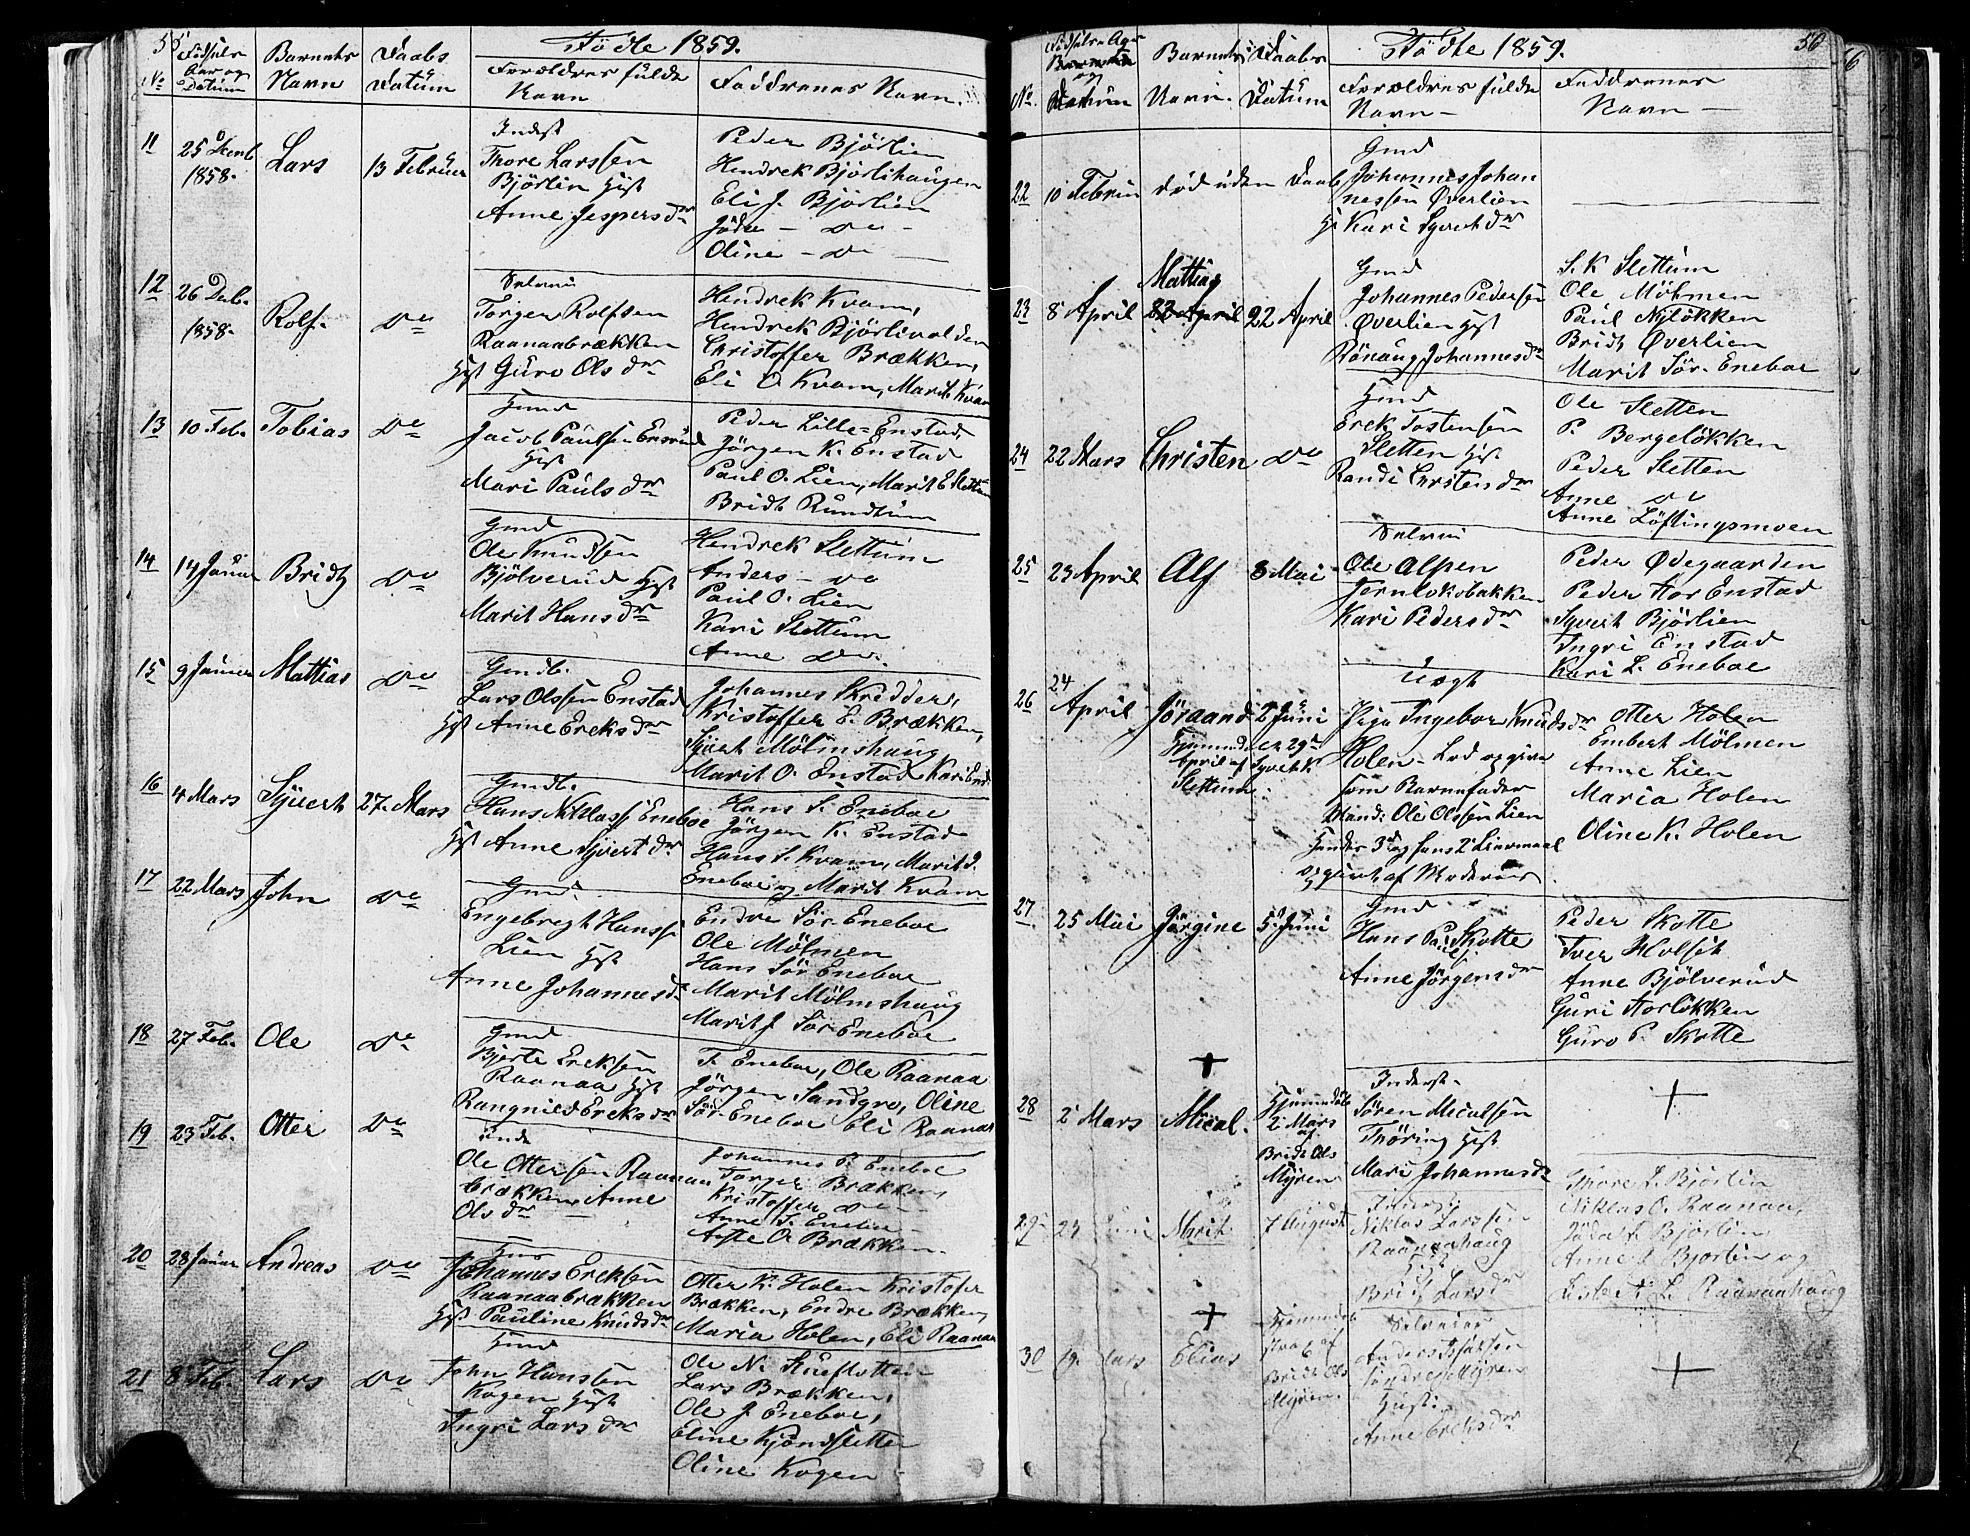 55
Födte 1859.
No
Födsels Aar og Datum
Barnets Navn
Daabs Datum
Forældres fulde Navn
Faddrenes Navn.
11
25 Decemb 1858.
Lars
13 Februar
Inderst
Thore Larssen
Björlien Hust
Anne Jespersdr
Peder Björlien
Hendrek Björlihaugen
Eli J. Björlien
Jödu — do —
Oline — do —
12
26 Decbr. 1858.
Rolf.
do
Selvei
Torger Rolfsen
Raanaabrækken
Hust Guro Olsdr
Hendrek Kvam,
Hendrek Björlivolden
Christoffer Brækken,
Eli O. Kvam, Marit Kvam
13
10 Feb.
Tobias
do
Gmd
Jacob Paulsen Ensrud
Hust
Mari Paulsdr
Peder Lille-Enstad,
Jörgen K. Enstad
Paul O. Lien, Marit E Slettum
Bridt Rundtum
14
14 Januar
Bridt
do
Gmd
Ole Knudsen
Bjölverud Hust
Marit Hansdr
Hendrek Slettum
Anders — do
Paul O. Lien
Kari Slettum
Anne do.
15
9 Januar
Mattias
do
Gmdb.
Lars Olssen Enstad
Hust Anne Ereksdr
Johannes Skredder,
Kristoffer E. Brækken,
Syvert Mölmshaug
Marit O. Enstad, Kari Enst
16
4 Mars
Syvert
27. Mars
Gmdb.
Hans Niklass Eneboe
Hust Anne Syvertdr
Hans S. Eneboe
Jörgen K. Enstad
Hans S. Kvam, Marit I.
Eneboe og Marit Kvam
17
22 Mars
John
do
Gmd
Engebregt Hanss
Lien Hust
Anne Johannesdr
Endre Sör-Eneboe
Ole Mölmen
Hans Sör Eneboe
Marit Mölmshaug
Marit J Sör-Eneboe
18
27 Feb.
Ole
do
Gmd
Bjerte Ereksen
Raanaa Hust
Rangnild Ereksdr
T. Eneboe, Ole Raanaa
Jörgen Sandgro, Oline
Sör-Eneboe Eli Raanaa
19
23 Feb.
Otter
do
Inde
Ole Ottersen Raanaa
brækken, Anne
Olsdr
Johannes P. Eneboe
Torger Brækken,
Kristoffer do
Anne S. Eneboe
Aaste O. Brækken.
20
28 Januar
Andreas
do
Johannes Ereksen
Raanaabrækken
Hust Pauline Knudsdr
Otter K. Holen Kristofer
Brækken, Endre Brækken,
Maria Holen, Eli Raanaa
21
8 Feb.
Lars
do
Gmd
John Hanssen
Kogen Hust
Ingri Larsdr
Ole N. Stueflotten
Lars Brækken,
Ole J. Eneboe,
Eline Kjöndsletten
Oline Kogen
56
Födte 1859.
No.
Födsels-Aar og Datum
Barnets Navn.
Daabs Datum
Forældres fulde Navn —
Faddrenes Navn —
22
10 Februar
död uden Daab
Gmd
Johannes Johan
nessen Øverlien
H. Kari Syvertdr
23
8 April
Mattias
22 April
22 April
Gmd
Johannes Pedersen
Øverlien Hust
Rönaug Johannesdr
S. K Slettum
Ole Mölmen
Paul Nylökken
Bridt Øverlien
Marit Sör-Eneboe
24
22 Mars
Christen
do
Gmd
Erek Tostensen
Sletten Hust
Randi Chrstendr
Ole Sletten
P. Bergelökken
Peder Sletten
Anne do
Anne Löftingsmoen
25
23 April
Alf
8 Mai
Selvei
Ole Alfsen
Jernlokobakken
Kari Pedersdr
Peder Ødegaarden
Peder Hor Enstad
Syvert Björlien
Ingri Enstad
Kari L. Eneboe
26
24 April
Jöraand
2 Juni
Hjemmedöbt 29de
April af Syvert K
Slettum.
Uægt
Piga Ingebor Knudsdr
Holen — Lod opgive
som Barnefader
Mand: Ole Olssen Lien
Hendes 3die og hans 2det Leiermaal
opgivet af Moderen
Otter Holen
Embert Mölmen
Anne Lien
Maria Holen
Oline K. Holen
27
25 Mai
Jörgine
5 Juni
Gmd
Hans Pauls Skotte
Anne Jörgensdr
Peder Skotte
Iver Holset
Anne Bjölverud
Guri Horlökken
Guro P. Skotte
28
2 Mars
+
Mical.
Hjemmedöbt
2 Mars
af
Bridt Ols
Myren
Inderst.
Sören Micalsen
Thöring Hust
Mari Johannesdr
+
29
Marit
7 August
Inderst
Niklas Larssen
Raanaahaug
Hust
Bridt Larsdr
Thore L. Björlien
Niklas O. Raanaa,
Jöda T. Björlien
Anne L Björlien og
L. Raanaahaug
30
+
Elias
Hjemmedöbt
strax af
Bridt Ols
Myren.
Selveier
Anders
Söndre Myren
Hust:
Anne Ereksdr
+